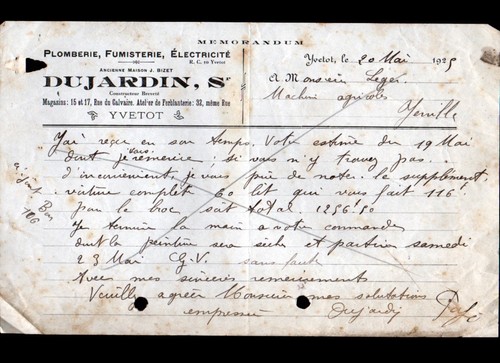 MEMORANDUM
PLOMBERIE, FUMISTERIE, ÉLECTRICITÉ
R. C. 10 Yvetot
ANCIENNE MAISON J. BIZET
DUJARDIN, Sr
Constructeur Breveté
Magasins: 15 et 17, Rue du Calvaire. Atelier de Ferblanterie: 32, même Rue
YVETOT
Yvetot, le 20 Mai 1925
A Monsieur Leger
Machines agricoles
Yerville
J'ai reçu en son temps. Votre estimé du 19 Mai
dont je vous remercie; si vous n'y trouvez pas
d'inconvenient je vais pris de note. le supplément
voiture complet 60 lit qui vous fait 116f
par le broc soit total 1256f50
Je termine la main a votre commande
dont la peinture sera sèche et partira samedi
23 Mai G.V. sans faute
Avec mes sincères remerciements
Veuillez agréer Monsieur mes salutations
empressées Dujardin